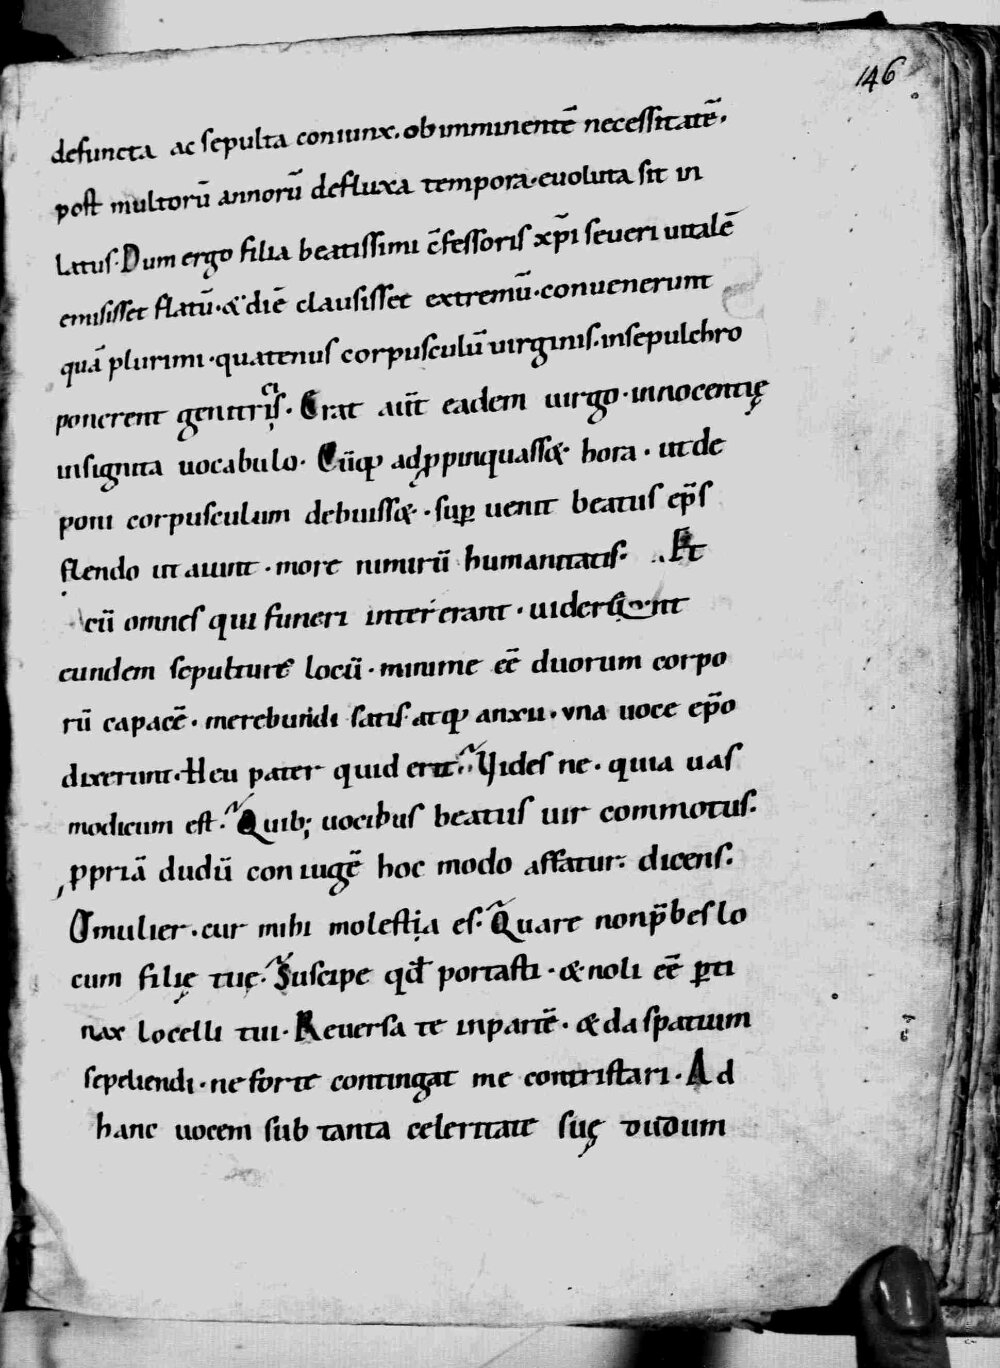 146
defuncta ac sepulta coniunx. ob imminentē necessitatē.
post multorū annorū defluxa tempora. euoluta sit in
latus. Dum ergo filia beatissimi c̄fessoris xp̄i seueri uitalē
emisisset flatū. & diē clausisset extremū. conuenerunt
quā plurimi. quatenus corpusculū uirginis. insepulchro
ponerent genitricis. Erat aut̄ eadem uirgo. innocentię
insignita uocabulo. Cūq; adꝓpinquass&. hora. ut de
poni corpusculum debuiss&. sup̱ uenit beatus ep̄s
flendo ut auunt. more nimirū humanitatis. Et
cū omnes qui funeri intererant. uiderent
eundem sepulturę locū. minime eē duorum corpo
rū capacē. merebundi satis atq; anxii. una uoce ep̄o
dixerunt. Heu pater quid erit. Vides ne. quia uas
modicum est. Quib; uocibus beatus uir commotus.
ꝓpriā dudū coniugē hoc modo affatur. dicens.
O mulier. cur mihi molesta es. Quare non p̄bes lo
cum filię tuę. Suscipe qđ portasti. & noli eē ꝑti
nax locelli tui. Reuersa te inpartē. & da spatium
sepeliendi. ne forte contingat me contristari. Ad
hanc uocem sub tanta celeritate suę dudum